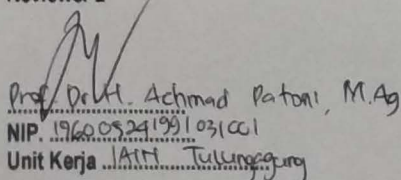 Prof. Dr. H. Achmad Patoni, M.Ag
NIP. 196005241991031001
Unit Kerja IAIN Tulungagung